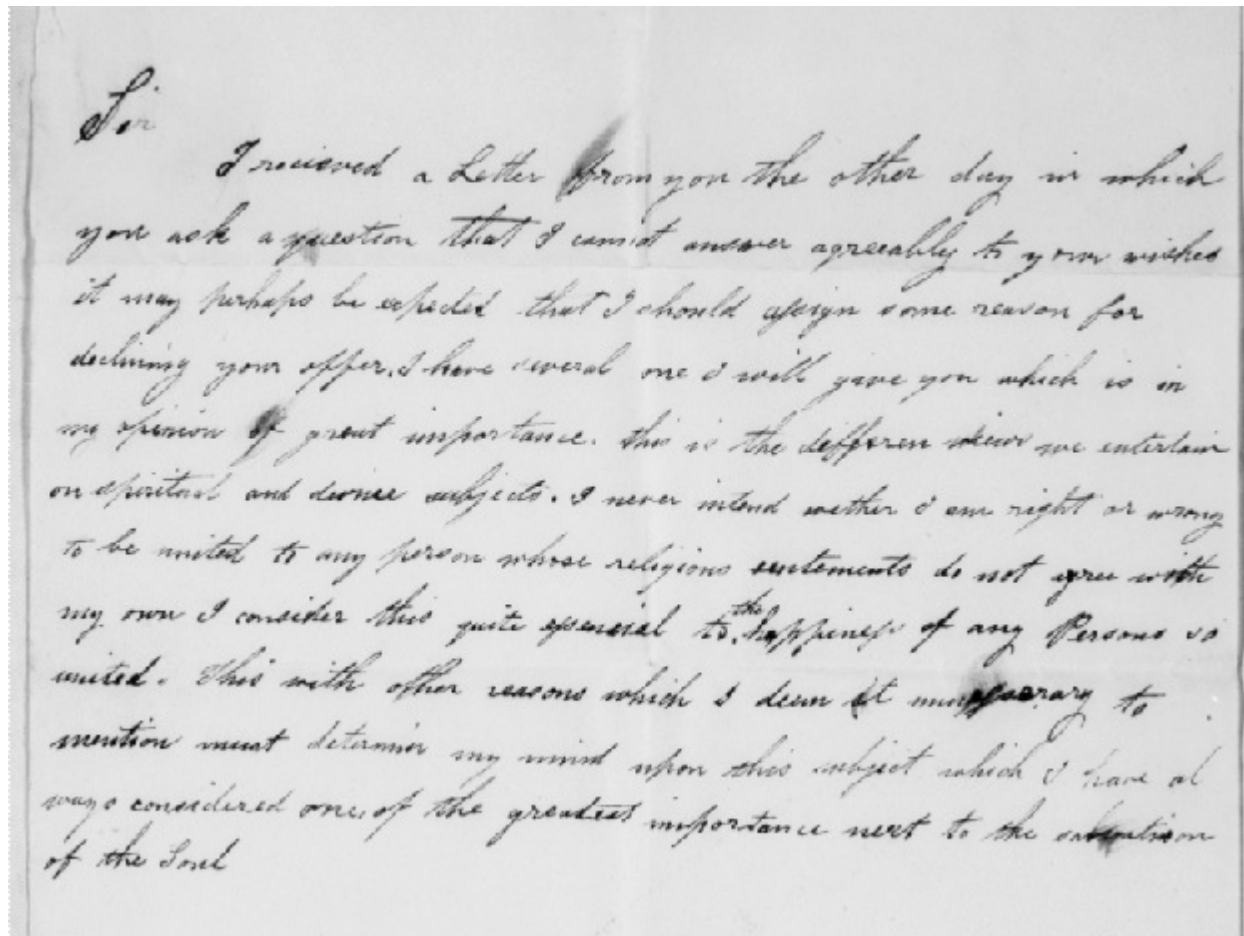 Sir
I recieved a Letter from you the other day in which
you ask a question that I cannot answer agreeably to your wishes
it may perhaps be expected that I should assign some reason for
declining your offer. I have several one I will gave you which is in
my opinion of great importance. this is the differen views we entertain
on spiritual and devine subjects. I never intend wether I am right or wrong
to be united to any person whose religious sentements do not agree with
my own I consider this quite essencial to the happiness of any Persons so
united. This with other reasons which I deem it unnessarary to
mention must determin my mind upon this subject which I have al
ways considered one of the greatest importance next to the salvation
of the Soul